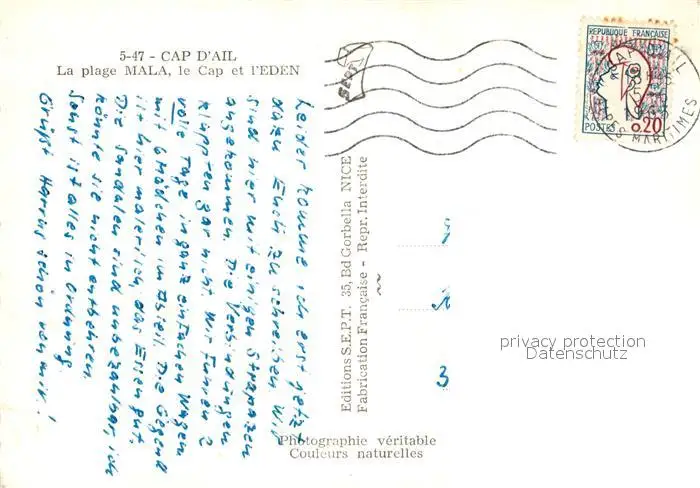 5-47 - CAP D'AIL
La plage MALA, le Cap et l'EDEN
REPUBLIQUE FRANÇAISE
POSTES 0,20
CAP D'AIL
ALPES MARITIMES
Leider komme ich erst jetzt
dazu Euch zu schreiben. Wir
sind hier mit einigen Strapazen
angekommen. Die Verbindungen
klappten gar nicht. Wir fuhren 2
volle Tage in ganz einfachen Wagen
mit 6 Mädchen im Abteil. Die Gegend
ist hier malerisch, das Essen gut.
Die Sandalen sind unbezahlbar, ich
könnte sie nicht entbehren.
Sonst ist alles in Ordnung.
Grüßt Harris schön von mir!
Editions S.E.P.T. 35, Bd Gorbella NICE
Fabrication Française - Repr. Interdite
3
privacy protection
Datenschutz
Photographie véritable
Couleurs naturelles